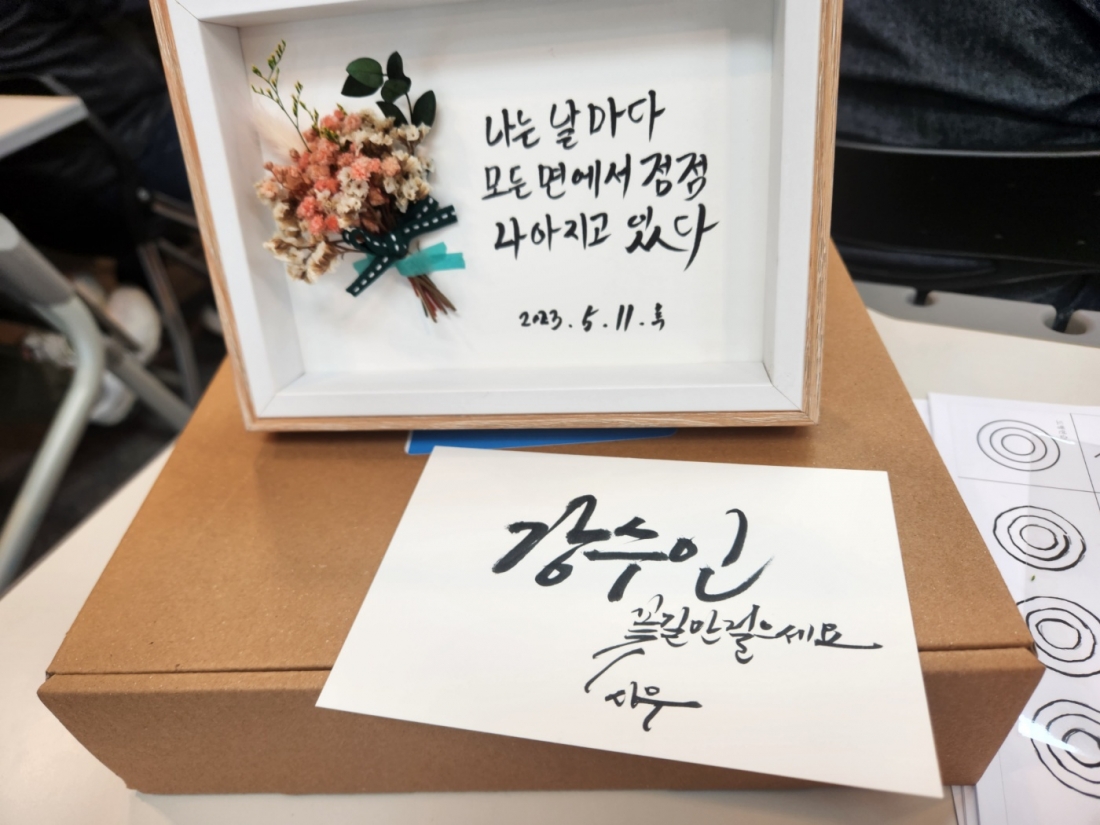 나는 날마다
모든 면에서 점점
나아지고 있다
2023. 5. 11. 목
강수인
꽃길만 걸으세요